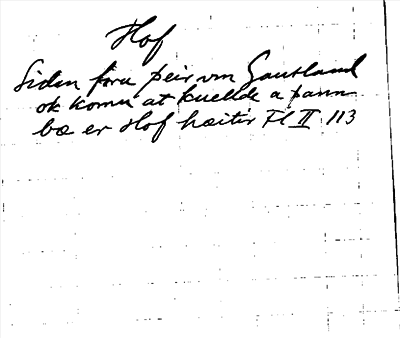 Hof
Siden foru þeir vm Gautland
ok komu at kuellde a þann
bæ er Hof hæitir Fl II 113